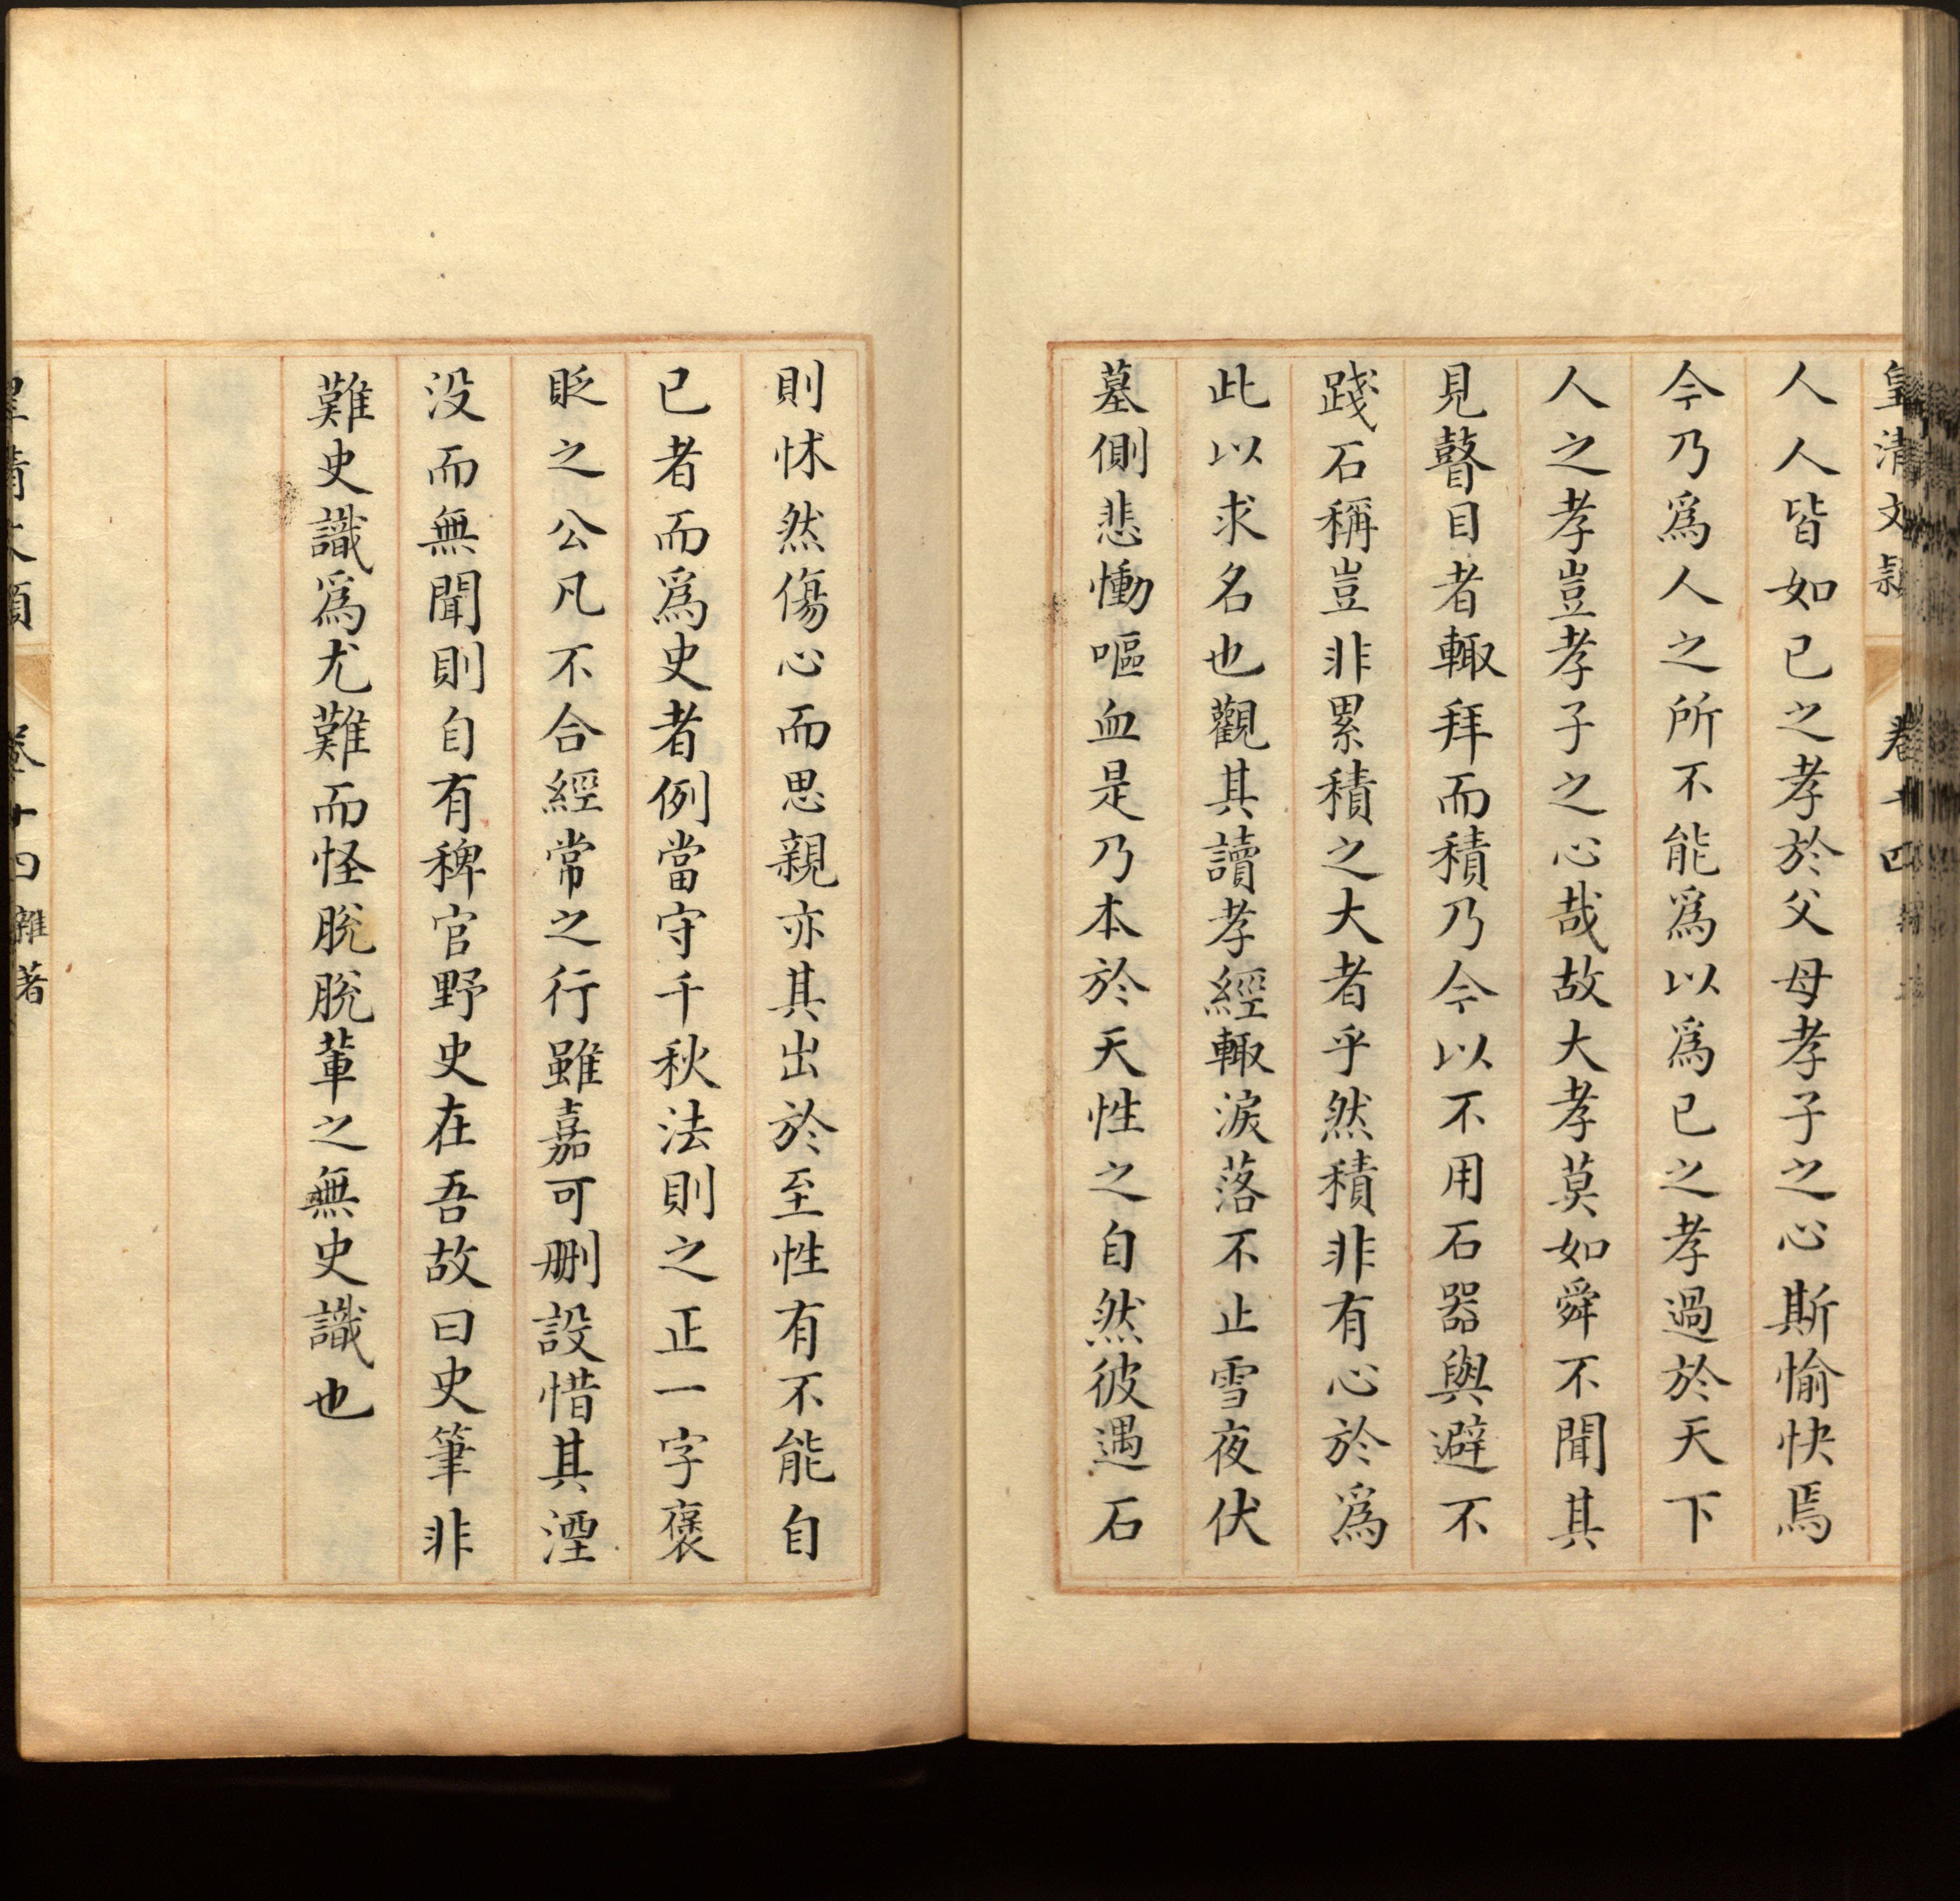 皇清文穎 卷十四
人人皆如已之孝於父母孝子之心斯愉快焉
今乃爲人之所不能爲以爲已之孝過於天下
人之孝豈孝子之心哉故大孝莫如舜不聞其
見瞽目者輙拜而積乃今以不用石器與避不
踐石稱豈非累積之大者乎然積非有心於爲
此以求名也觀其讀孝經輙淚落不止雪夜伏
墓側悲慟嘔血是乃本於天性之自然彼遇石
則怵然傷心而思親亦其出於至性有不能自
已者而爲史者例當守千秋法則之正一字褒
貶之公凡不合經常之行雖嘉可删設惜其湮
没而無聞則自有稗官野史在吾故曰史筆非
難史識爲尤難而怪脱脱輩之無史識也
皇清文穎 卷十四 雜著